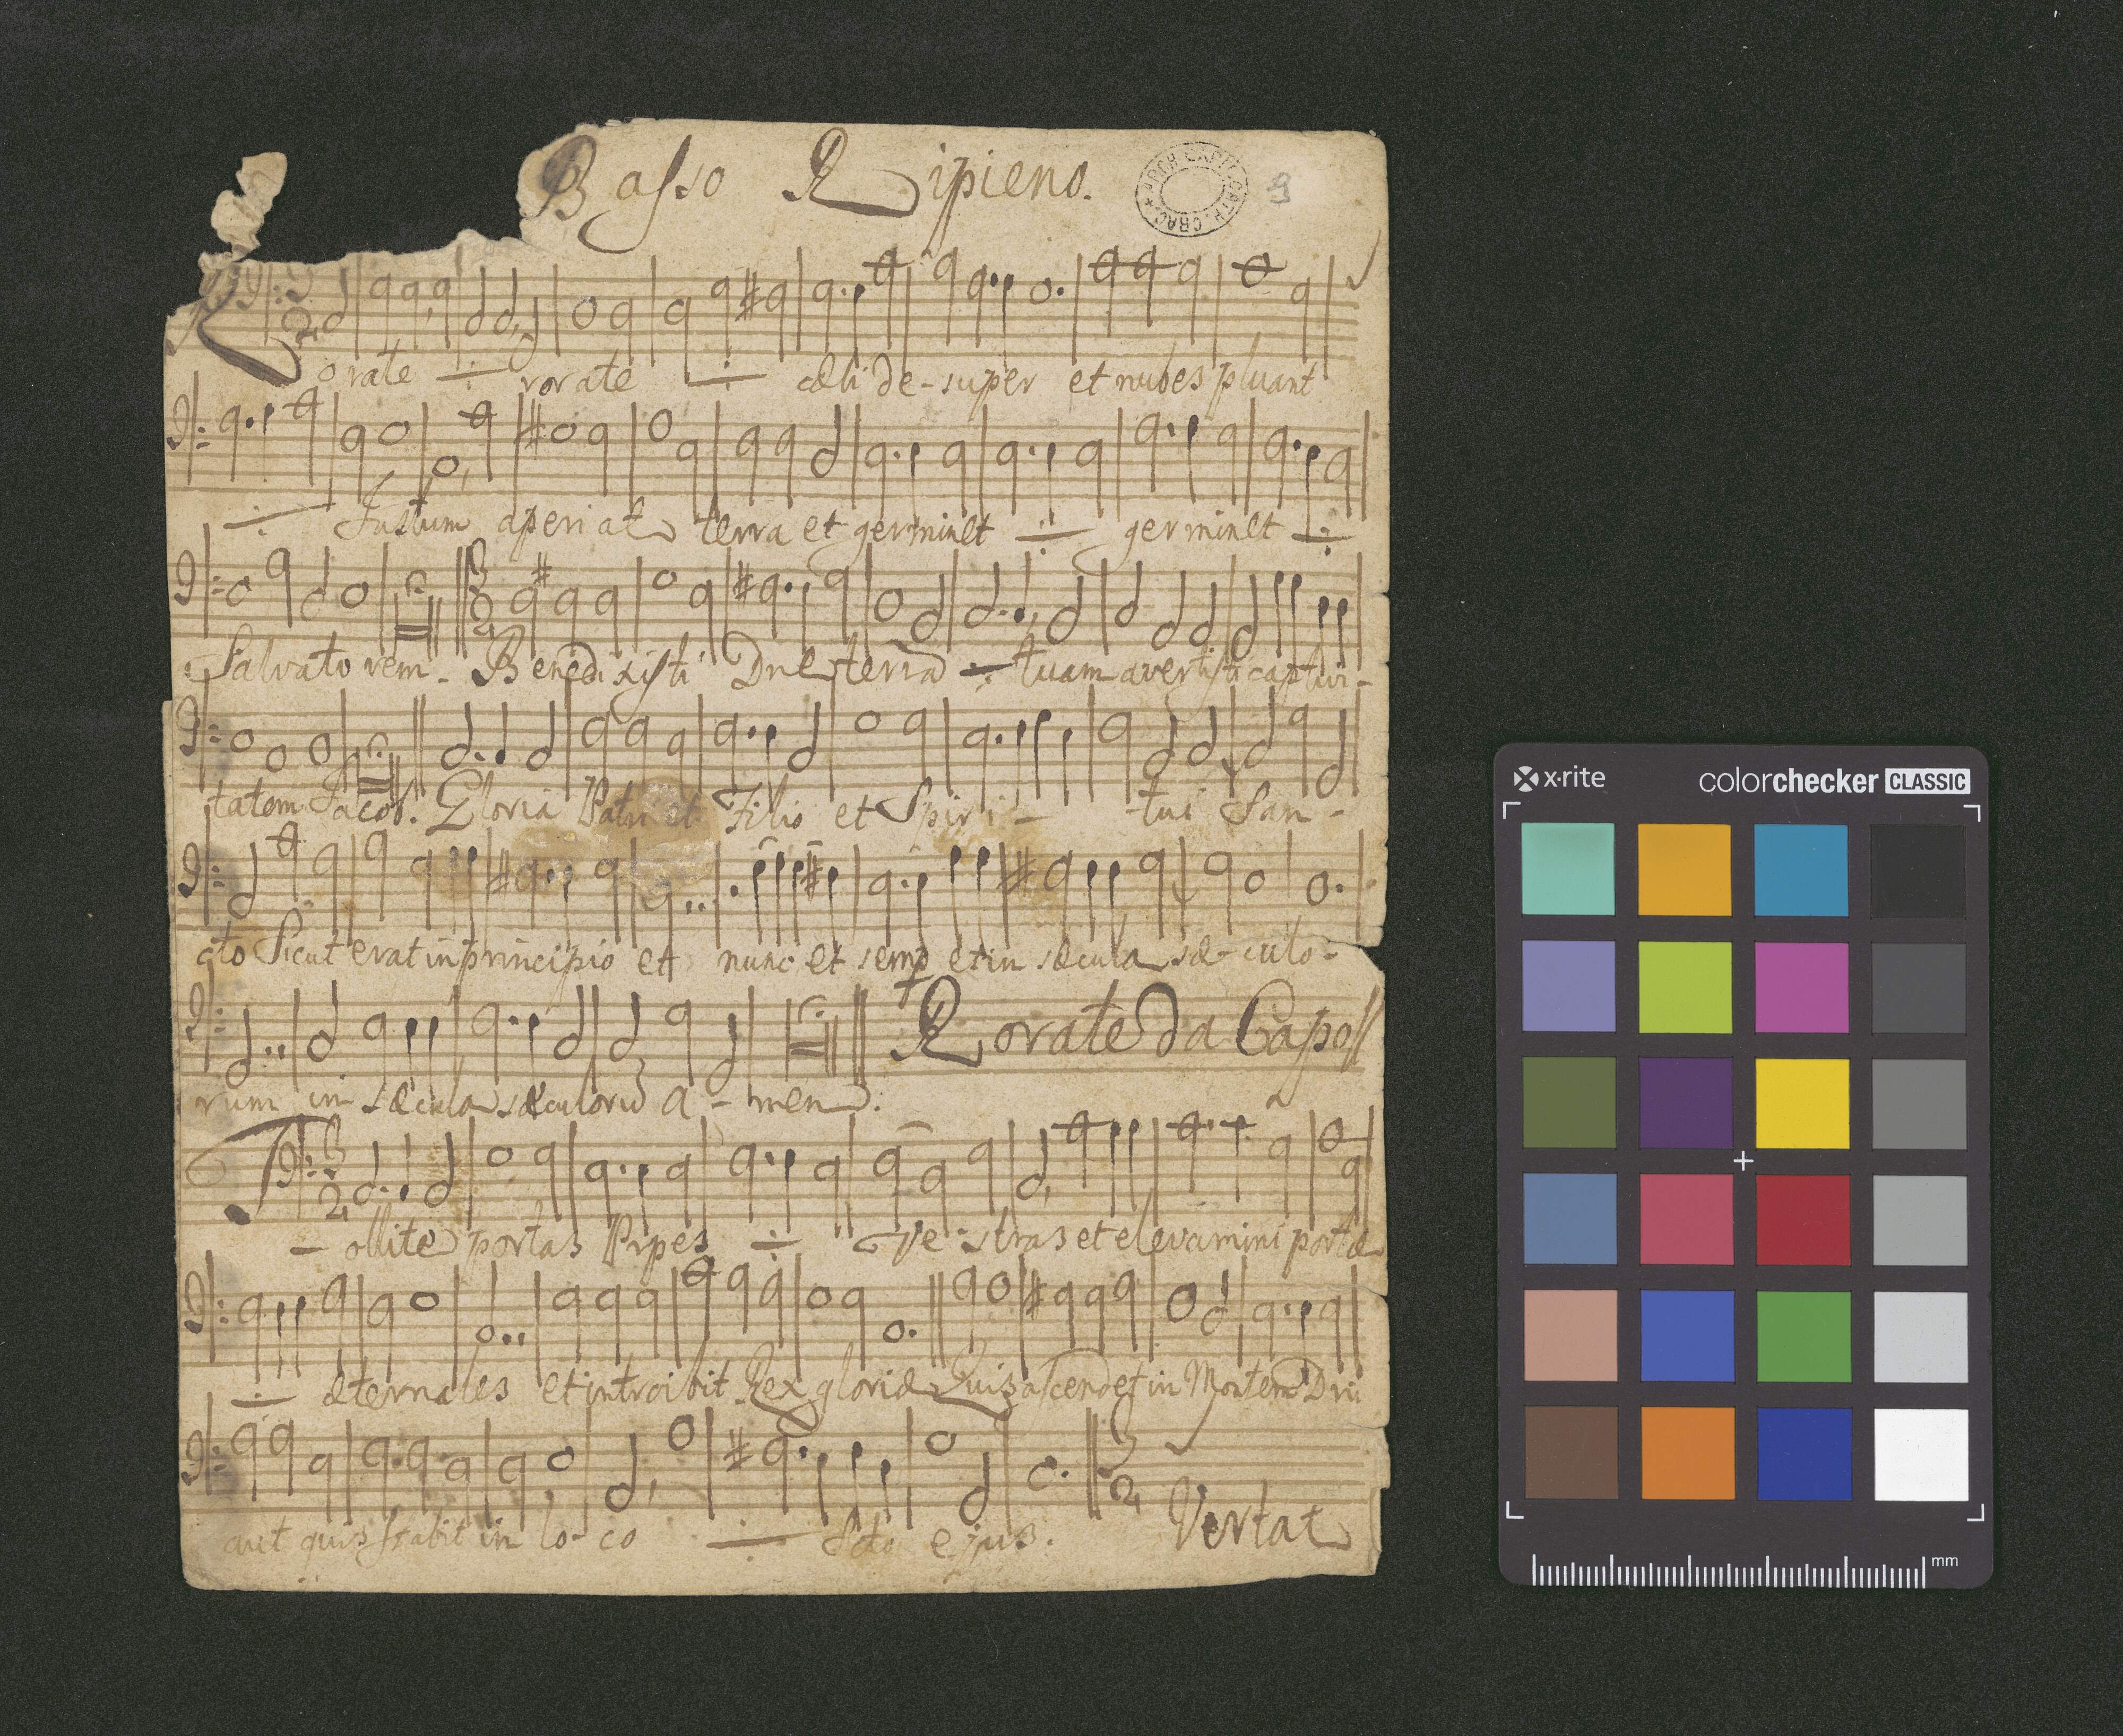 Basso Ripieno.
ARCH. CAPIT. CATH. CRAC.
9
Rorate ·/· rorate ·/· cæli de-super et nubes pluant
·/· Justum aperiat terra et germinet ·/· germinet ·/·
Salvatorem. Benedixisti Dne terrã ·/· tuam avertisti captivi-
tatem Jacob. Gloria Patri et Filio et Spiri- -tui San-
cto Sicut erat in principio et nunc et semp et in sæcula sæ-culo-
Rorate da Capo
rum in sæcula sæculorũ a-men.
Tollite portas Prpes ·/· Ve-stras et elevamini portæ
·/· æternales et introibit Rex gloriæ Quis ascendet in Montem Dni
aut quis stabit in lo-co ·/· Scto ejus. Vertat
x-rite
colorchecker CLASSIC
mm